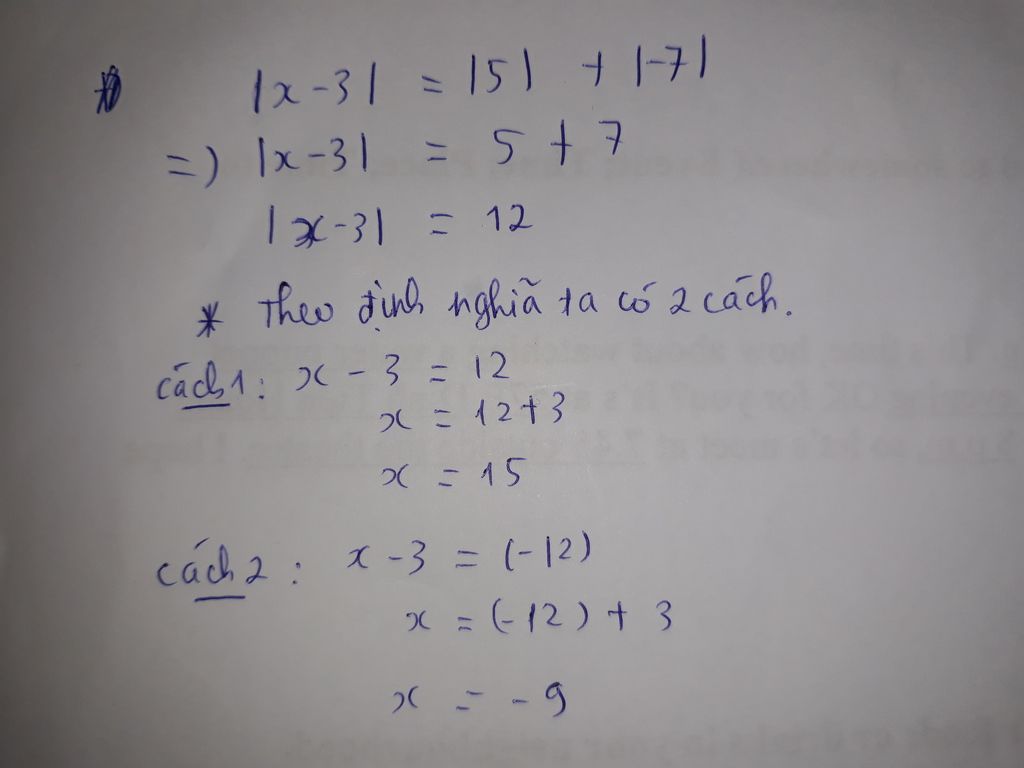 |x-3| = |5| + |-7|
=) |x-3| = 5 + 7
|x-3| = 12
* Theo định nghiã ta có 2 cách.
cách 1 : x - 3 = 12
x = 12+3
x = 15
cách 2 : x - 3 = (-12)
x = (-12) + 3
x = - 9